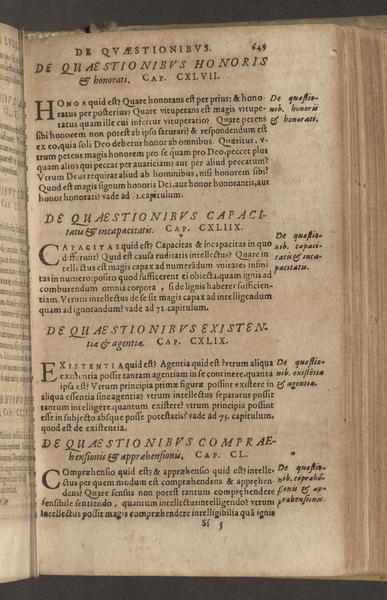 DE QVÆSTIONIBVS. 649
DE QUÆSTIONIBVS HONORIS
& honorati. CAP. CXLVII.
HONOR quid est? Quare honorans est per prius: & hono-
ratus per posterius? Quare vituperans est magis vitupe-
ratus quam ille cui infertur vituperatio? Quare petens
sibi honorem non potest ab ipso saturari? & respondendum est
ex eo, quia soli Deo debetur honor ab omnibus. Quæritur, v-
trum petens magis honorem pro se quam pro Deo, peccet plus
quam alius qui peccat per auariciam? aut per aliud peccatum?
Vtrum Deus requirat aliud ab hominibus, nisi honorem sibi?
Quod est magis signum honoris Dei, aut honor honorantis, aut
honor honorati? vade ad 1. capitulum.
De quæstio-
nib. honoris
& honorati.
DE QUÆSTIONIBVS CAPACI-
tatis & incapacitatis. CAP. CXLIIX.
CAPACITAS quid est? Capacitas & incapacitas in quo
differunt? Quid est causa ruditatis intellectus? Quare in
tellectus est magis capax ad numerandum voitates infini
tas in numero: posito quod sufficerent ei obiecta, quam ignis ad
comburendum omnia corpora, si de lignis haberet sufficien-
tiam. Vtrum intellectus de se sit magis capax ad intelligendum
quam ad ignorandum? vade ad 72. capitulum.
De quæstio-
nib. capaci-
tatis & inca-
pacitatis.
DE QUÆSTIONIBVS EXISTEN-
tiæ & agentiæ. CAP. CXLIX.
EXISTENTIA quid est? Agentia quid est? vtrum aliqua
existentia possit tantam agentiam in se continere, quanta
ipsa est? Vtrum principia primæ figuræ possint existere in
aliqua essentia sine agentia? vtrum intellectus separatus possit
tantum intelligere quantum existere? vtrum principia possint
esse in subiecto absque posse potestatis? vade ad 73. capitulum,
quod est de existentia.
De quæstio-
nib. existētiæ
& agentiæ.
DE QUÆSTIONIBVS COMPRAE-
hensionis & appræhensionis. CAP. CL.
COmpræhensio quid est? & appræhensio quid est? intelle-
ctus per quem modum est compræhendens & appræhen-
dens? Quare sensus non potest tantum compræhendere
sensibile sentiendo, quantum intellectus intelligendo? vtrum
intellectus possit magis compræhendere intelligibilia quā ignis
De quæstio-
nib. cōpræhē-
sionis & ap-
præhensionis.
Sſ 5